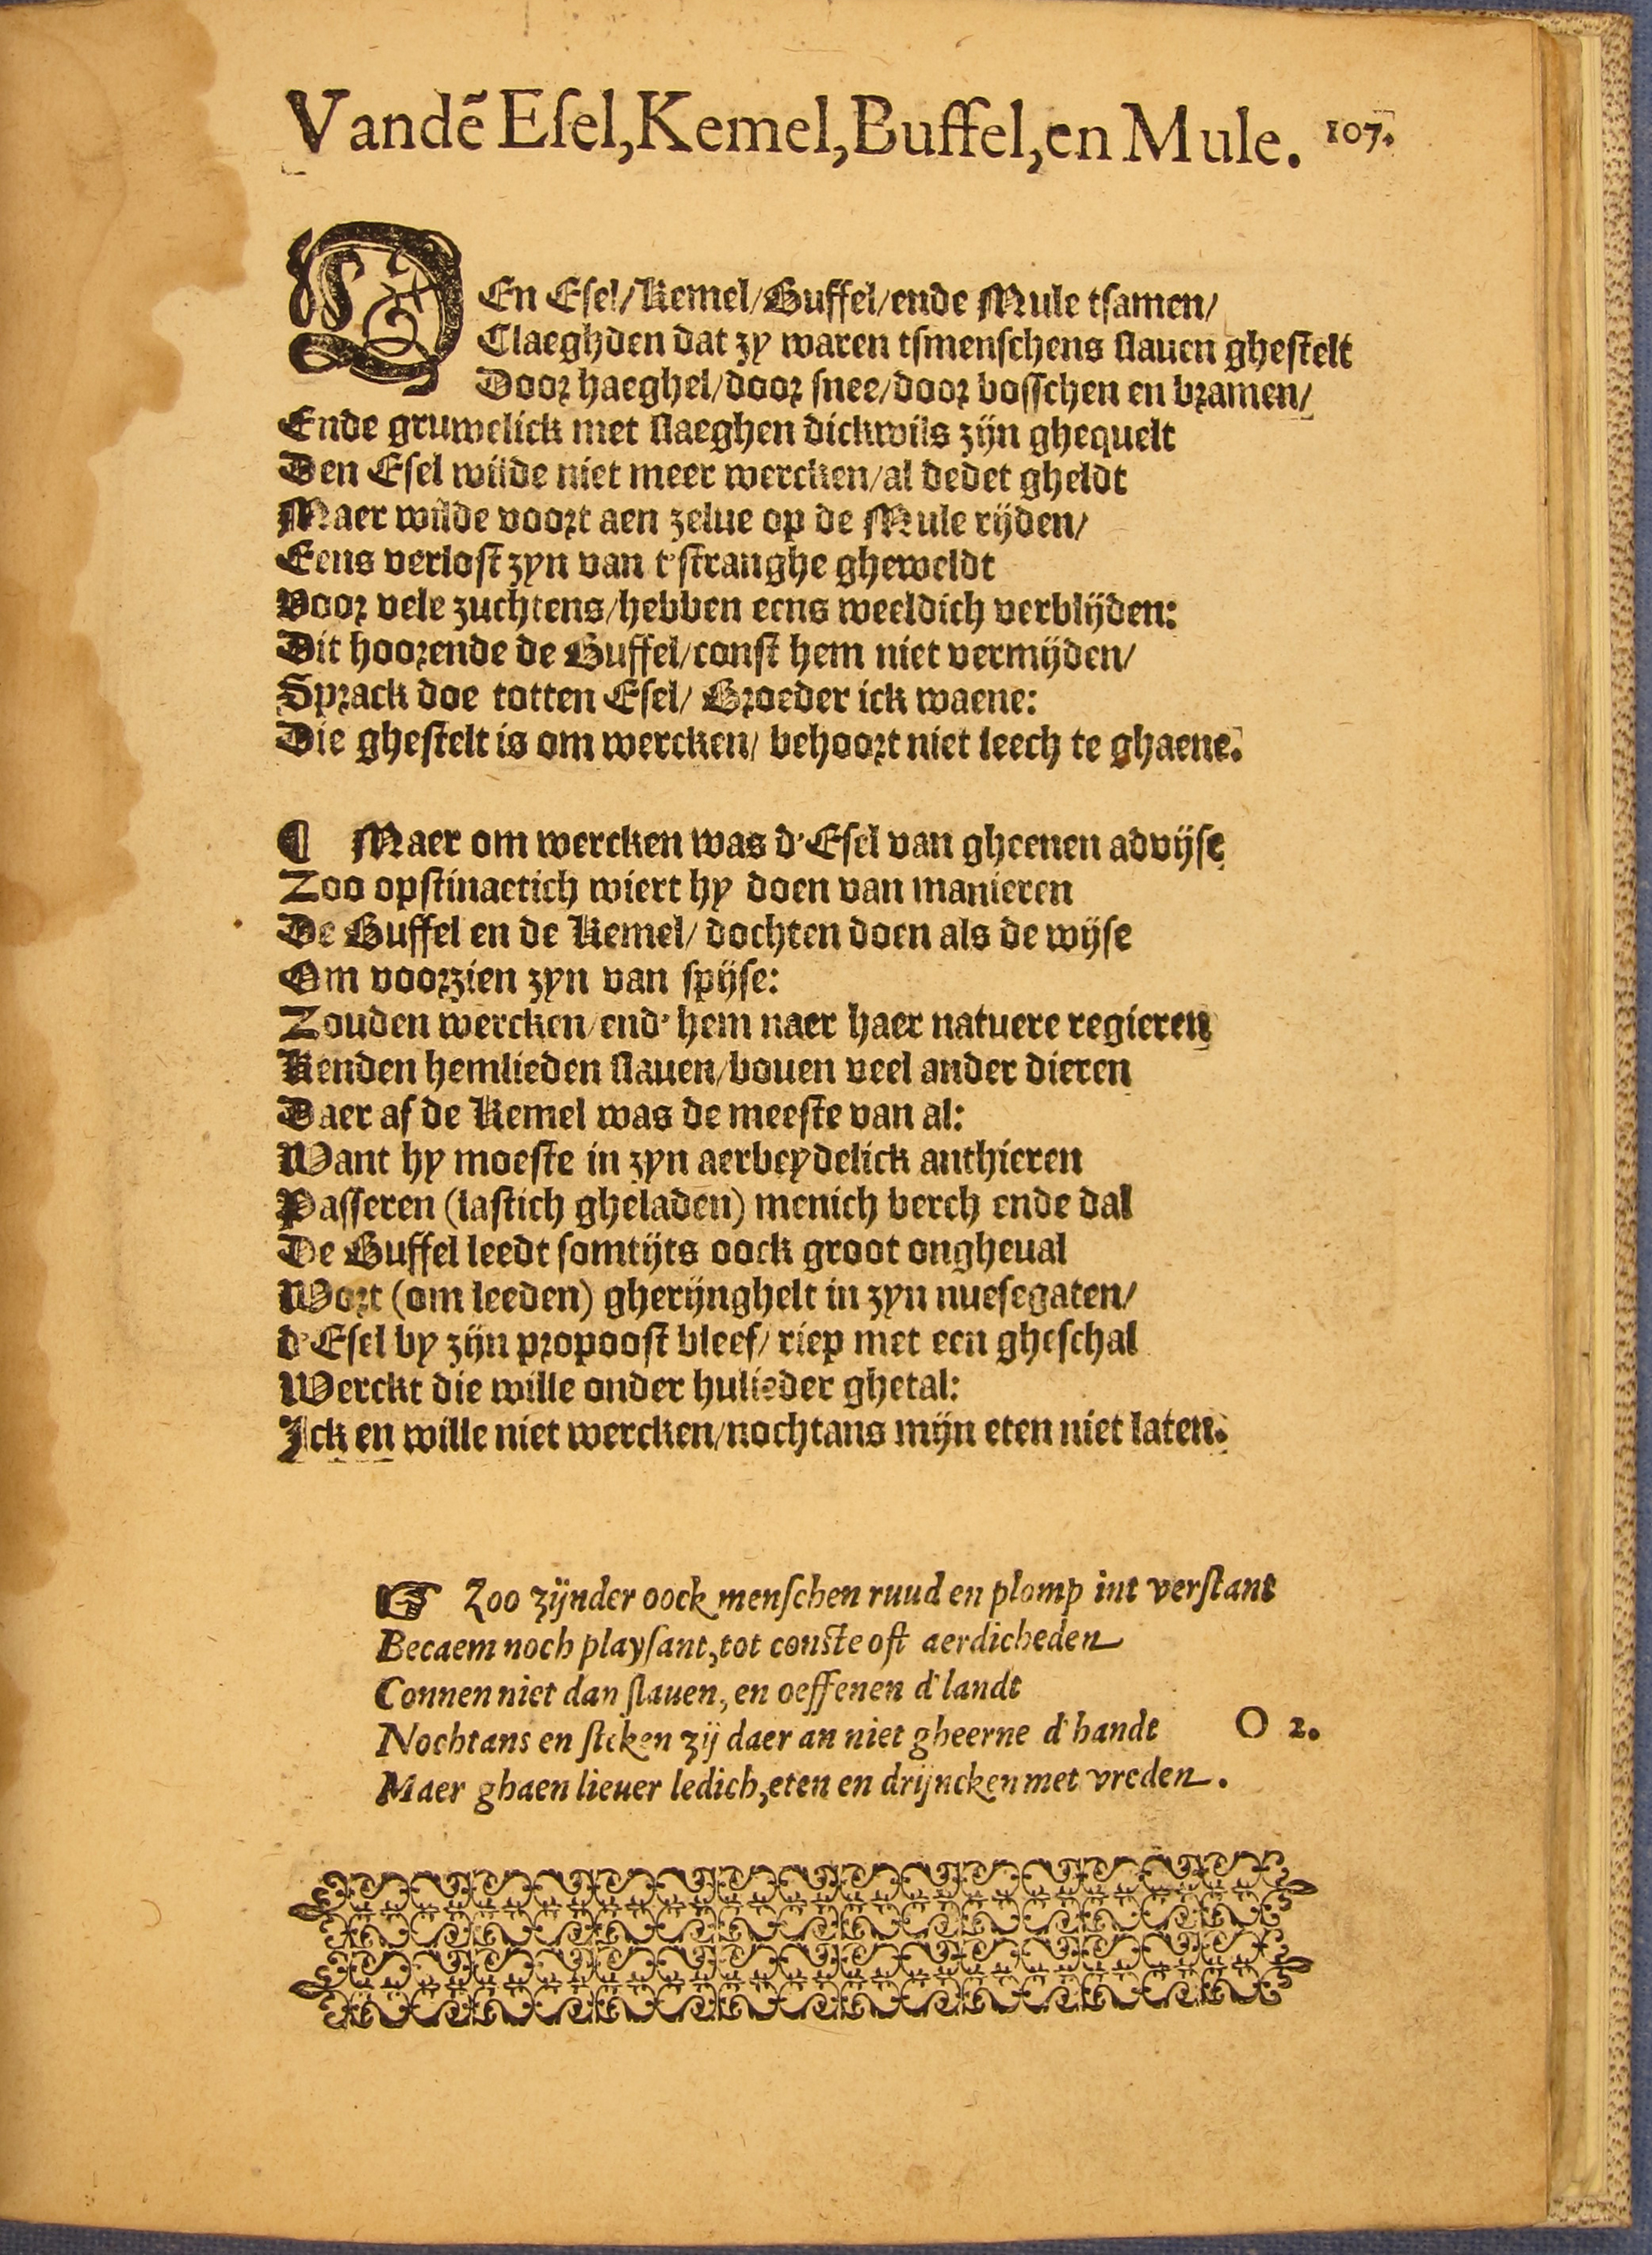 Vandē Eſel, Kemel, Buffel, en Mule. 107.
DEn Eſel/Kemel/Buffel/ende Mule tſamen/
Claeghden dat zy waren tſmenſchens ſlauen gheſtelt
Door haeghel/door ſnee/door boſſchen en bramen/
Ende gruwelick met ſlaeghen dickwils zijn ghequelt
Den Eſel wilde niet meer wercken/al dedet gheldt
Maer wilde voort aen zelue op de Mule rijden/
Eens verloſt zyn van t'ſtranghe gheweldt
Voor vele zuchtens/hebben eens weeldich verblijden:
Dit hoorende de Buffel/conſt hem niet vermijden/
Sprack doe totten Eſel/ Broeder ick waene:
Die gheſtelt is om wercken/ behoort niet leech te ghaene.
¶ Maer om wercken was d'Eſel van gheenen advijſe
Zoo opſtinaetich wiert hy doen van manieren
De Buffel en de Kemel/ dochten doen als de wijſe
Om voorzien zyn van ſpijſe:
Zouden wercken/end' hem naer haer natuere regieren
Kenden hemlieden ſlauen/bouen veel ander dieren
Daer af de Kemel was de meeſte van al:
Want hy moeſte in zyn aerbeydelick anthieren
Paſſeren (laſtich gheladen) menich berch ende dal
De Buffel leedt ſomtijts oock groot ongheual
Wort (om leeden) gherijnghelt in zyn nueſegaten/
d'Eſel by zijn propooſt bleef/ riep met een gheſchal
Werckt die wille onder hulieder ghetal:
Ick en wille niet wercken/nochtans mijn eten niet laten.
☞ Zoo zijnder oock menſchen ruud en plomp int verſtant
Becaem noch playſant, tot conſte oft aerdicheden
Connen niet dan ſlauen, en oeffenen d'landt
Nochtans en ſteken zij daer an niet gheerne d'handt
O 2.
Maer ghaen lieuer ledich, eten en drijncken met vreden.